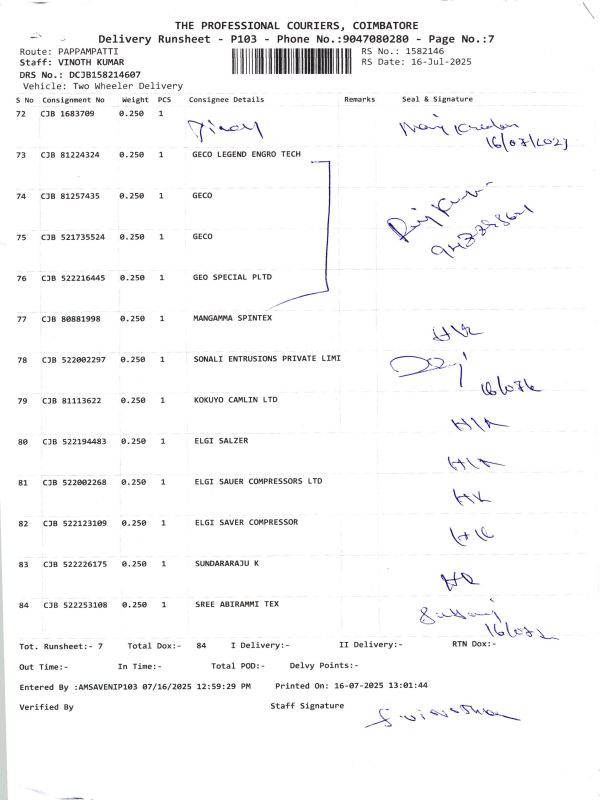 THE PROFESSIONAL COURIERS, COIMBATORE
Delivery Runsheet - P103 - Phone No.:9047080280 - Page No.:7
Route: PAPPAMPATTI RS No.: 1582146
Staff: VINOTH KUMAR RS Date: 16-Jul-2025
DRS No.: DCJB158214607
Vehicle: Two Wheeler Delivery
S No Consignment No Weight PCS Consignee Details Remarks Seal & Signature
72 CJB 1683709 0.250 1
16/07/2023
73 CJB 81224324 0.250 1 GECO LEGEND ENGRO TECH
74 CJB 81257435 0.250 1 GECO
75 CJB 521735524 0.250 1 GECO
76 CJB 522216445 0.250 1 GEO SPECIAL PLTD
77 CJB 80881998 0.250 1 MANGAMMA SPINTEX
78 CJB 522002297 0.250 1 SONALI ENTRUSIONS PRIVATE LIMI
79 CJB 81113622 0.250 1 KOKUYO CAMLIN LTD
80 CJB 522194483 0.250 1 ELGI SALZER
81 CJB 522002268 0.250 1 ELGI SAUER COMPRESSORS LTD
82 CJB 522123109 0.250 1 ELGI SAVER COMPRESSOR
83 CJB 522226175 0.250 1 SUNDARARAJU K
84 CJB 522253108 0.250 1 SREE ABIRAMMI TEX
Tot. Runsheet:- 7 Total Dox:- 84 I Delivery:- II Delivery:- RTN Dox:-
Out Time:- In Time:- Total POD:- Delvy Points:-
Entered By :AMSAVENIP103 07/16/2025 12:59:29 PM Printed On: 16-07-2025 13:01:44
Verified By Staff Signature